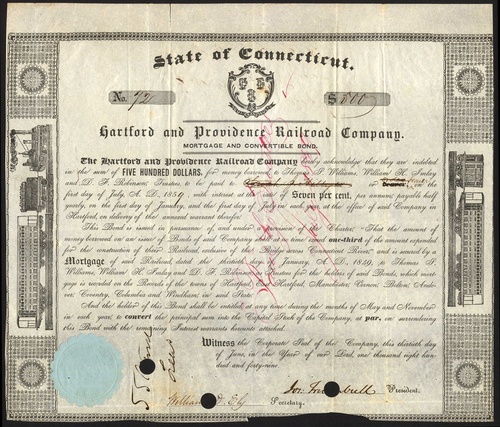 State of Connecticut.
No. 72
$ 500
Hartford and Providence Railroad Company.
MORTGAGE AND CONVERTIBLE BOND.
The Hartford and Providence Railroad Company hereby acknowledge that they are indebted
in the sum of FIVE HUNDRED DOLLARS, for money borrowed of Thomas P. Williams, William H. Imlay
and D. F. Robinson, Trustees, to be paid to or bearer, on the
first day of July A. D. 1859, with interest at the rate of Seven per cent. per annum, payable half
yearly, on the first day of January, and the first day of July in each year, at the office of said Company in
Hartford, on delivery of the annexed warrant therefor.
This Bond is issued in pursuance of, and under a provision of the Charter, "That the amount of
money borrowed on an issue of Bonds of said Company shall at no time exceed one-third of the amount expended
for the construction of their Railroad exclusive of the Bridge across Connecticut River," and is secured by a
Mortgage of said Railroad, dated the thirtieth day of January A. D. 1849, to Thomas P.
Williams, William H. Imlay and D. F. Robinson, Trustees for the holders of said Bonds, which mort-
gage is recorded on the Records of the towns of Hartford, East Hartford, Manchester, Vernon, Bolton, Ando-
ver, Coventry, Columbia and Windham, in said State.
And the holder of this Bond shall be entitled, at any time during the months of May and November
in each year, to convert the principal sum into the Capital Stock of the Company, at par, on surrendering
this Bond with the remaining Interest warrants hereunto attached.
Witness the Corporate Seal of the Company, this thirtieth day
of June, in the Year of our Lord, one thousand eight hund-
red and forty-nine.
Jos. Trumbull President.
William D. Ely Secretary.